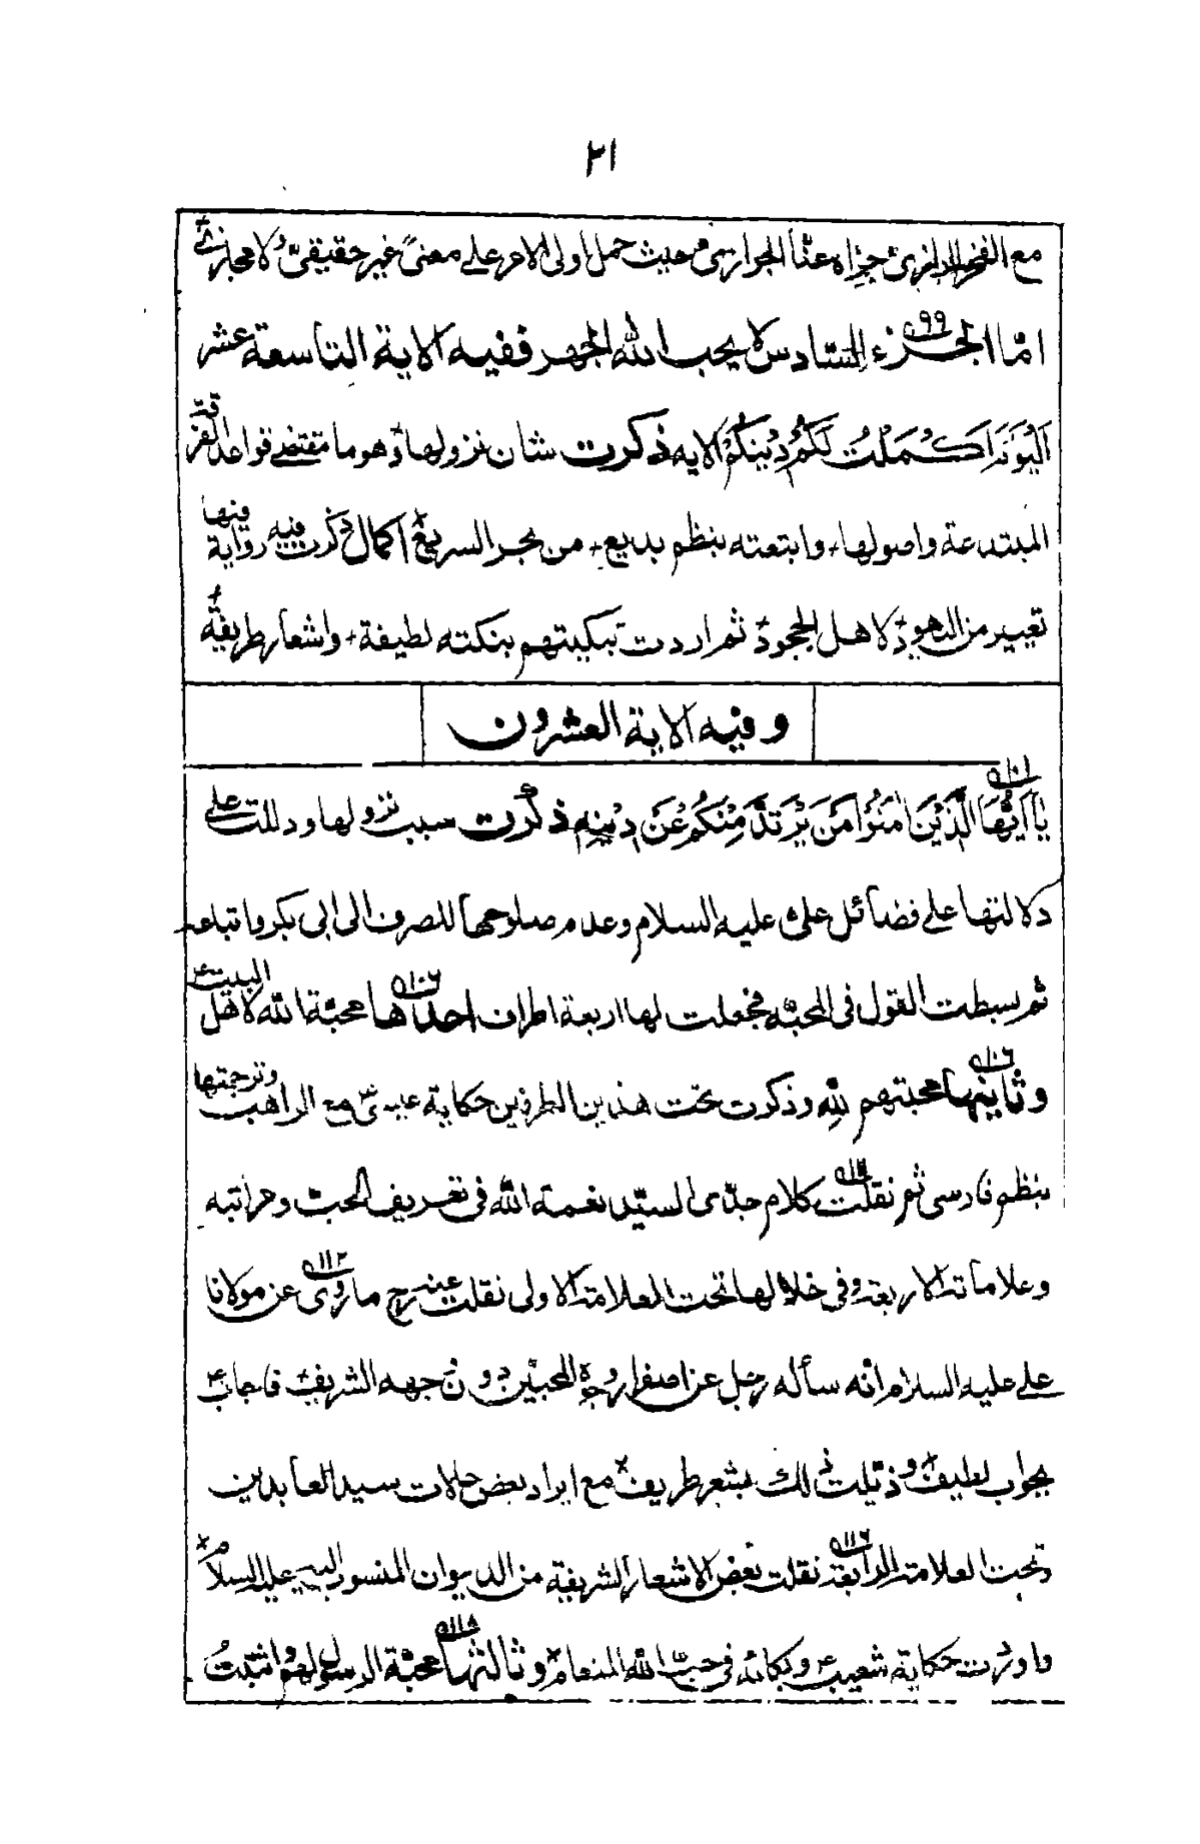 ٢١
مع الفخر الرازى جزاه عنا الجوارى من حيث حمل اولى الامر على معنىً غير حقيقىّ ولا مجازى
٩٩
امّا الجزء السّادس لا يحب الله الجهر ففيه الاية التاسعة عشر
اَلْيَوْمَ اَكْمَلْتُ لَكُمْ دِيْنَكُمْ الايه ذكرت شان نزولها وهو ما مقتضى قواعد الفرقة
المبتدعة واصولها، وابتعته بنظم بديع، من بحر السريع اكمال ذكرت فيه رواية فيها
تعيير من اليهود لاهل الجحود ثم اردت تبكيتهم بنكته لطيفة، واشعار طريفة
وفيه الاية العشرون
١٠١
يٰا اَيُّهَا الَّذِيْنَ اٰمَنُوْا مَنْ يَرْتَدَّ مِنْكُمْ عَنْ دِيْنِه ذكرت سبب نزولها ودللت على
دلالتها على فضائل على عليه السلام وعدم صلوحها للصرف الى ابى بكر واتباعه
١٠٢
ثم بسطت القول فى المحبّة فجعلت لها اربعة اطراف احدٰها محبّة الله لاهل البيت ع
١٠٦
وثانيها محبتهم لِلّٰه وذكرت تحت هذين الطرفين حكاية عيسىٰ مع الراهب وترجمتها
بنظم فارسى ثم نقلت كلام جدّى السيّد نعمة الله فى تعريف الحب ومراتبه
١١٢
وعلاماته الاربعة وفى خلالها تحت العلامة الاولى نقلت عنه رح ما روى عن مولانا
على عليه السلام انه سأله رجل عن اصفرار وجوه المحبّين دون وجهه الشريف فاجاب ع
بجواب لطيف وذيّلت ذلك بشعر طريف مع ايراد بعض حالات سيد العابدين
١١٦
تحت العلامة الرابعة نقلت بعض الاشعار الشريفة من الديوان المنسور اليه عليه السلام
١١٨
واوردت حكاية شعيب ع وبكائه فى حبّ الله المنعام وثالثها محبّة الرسول لهم واثبتُ